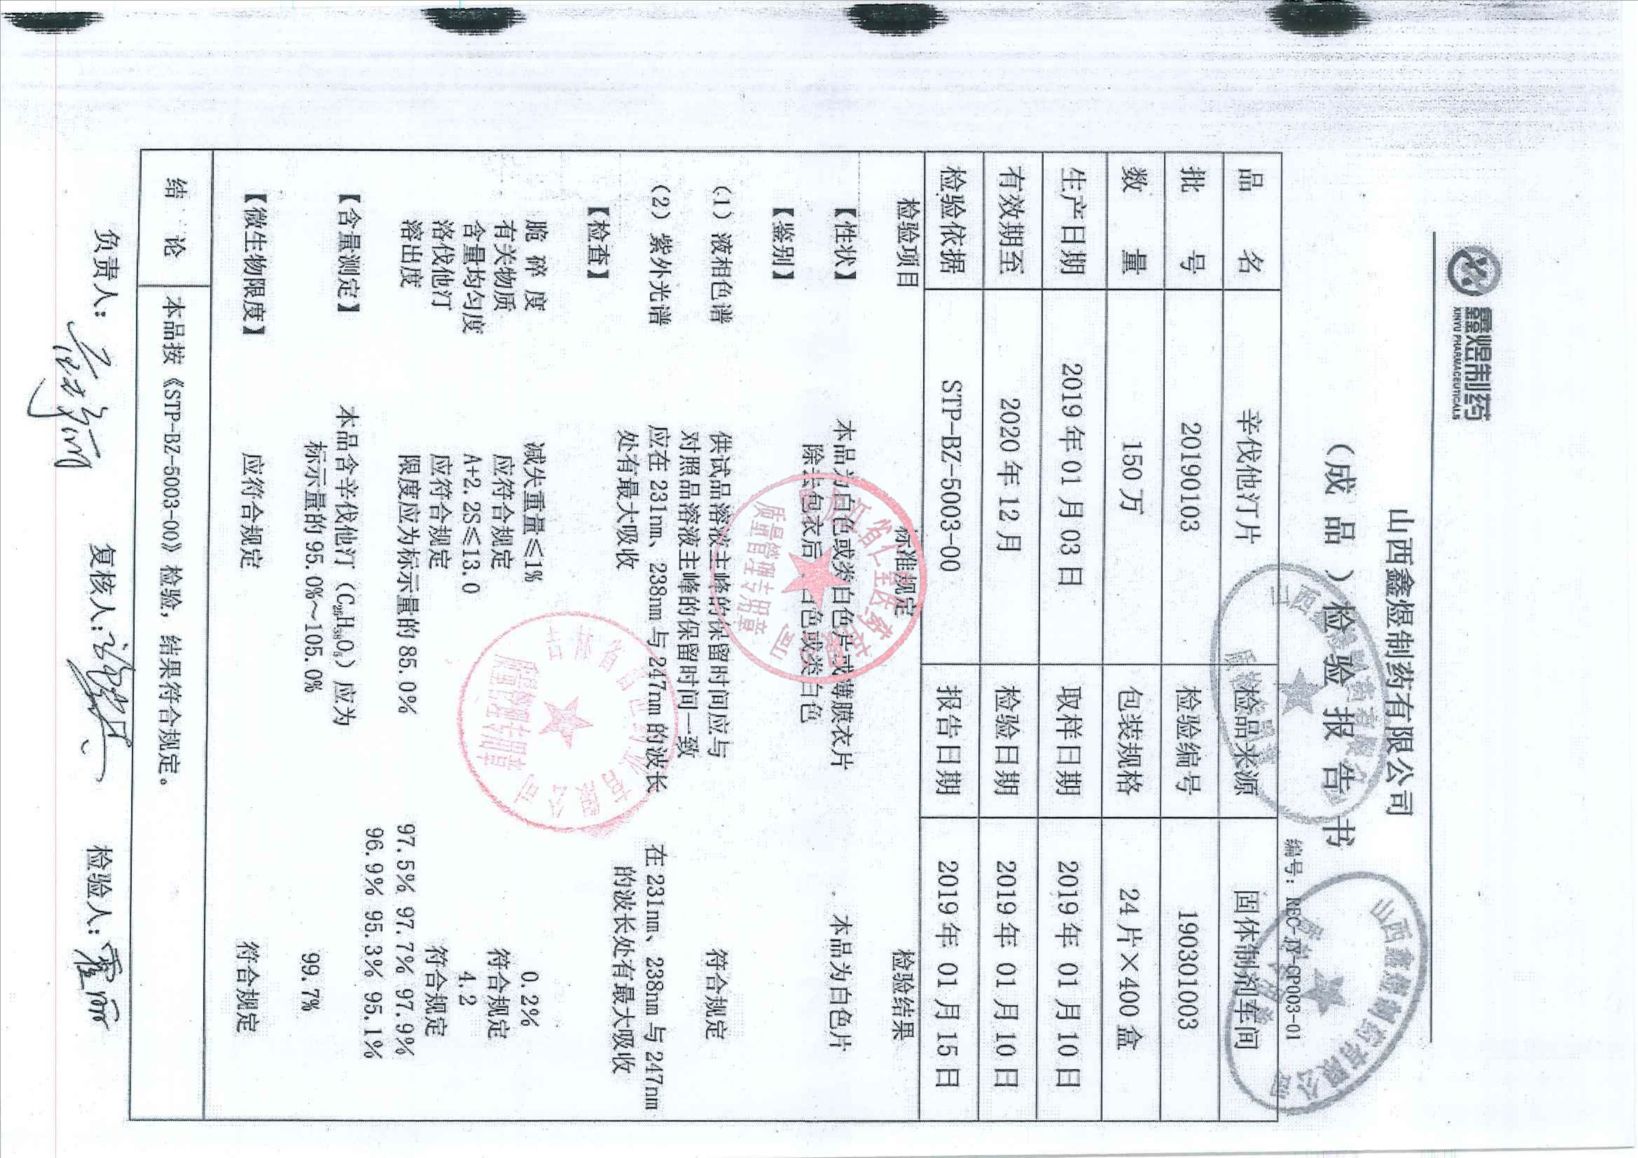 鑫煜制药
XINYU PHARMACEUTICALS
山西鑫煜制药有限公司
（成 品）检 验 报 告 书
编号：REC-ZL-CP003-01
品 名 辛伐他汀片 检品来源 固体制剂车间
批 号 20190103 检验编号 190301003
数 量 150 万 包装规格 24 片×400 盒
生产日期 2019 年 01 月 03 日 取样日期 2019 年 01 月 10 日
有效期至 2020 年 12 月 检验日期 2019 年 01 月 10 日
检验依据 STP-BZ-5003-00 报告日期 2019 年 01 月 15 日
检验项目 标准规定 检验结果
【性状】 本品为白色或类白色片或薄膜衣片 本品为白色片
除去包衣后 白色或类白色
【鉴别】
（1）液相色谱 供试品溶液主峰的保留时间应与 符合规定
对照品溶液主峰的保留时间一致
（2）紫外光谱 应在 231nm、238nm 与 247nm 的波长 在 231nm、238nm 与 247nm
处有最大吸收 的波长处有最大吸收
【检查】
脆 碎 度 减失重量≤1% 0.2%
有关物质 应符合规定 符合规定
含量均匀度 A+2.2S≤13.0 4.2
洛伐他汀 应符合规定 符合规定
溶出度 限度应为标示量的 85.0% 97.5% 97.7% 97.9%
96.9% 95.3% 95.1%
【含量测定】 本品含辛伐他汀（C₂₅H₃₈O₅）应为
标示量的 95.0%～105.0% 99.7%
【微生物限度】 应符合规定 符合规定
结 论 本品按《STP-BZ-5003-00》检验，结果符合规定。
负责人： 复核人： 检验人：
质量管理专用章
质量管理专用章